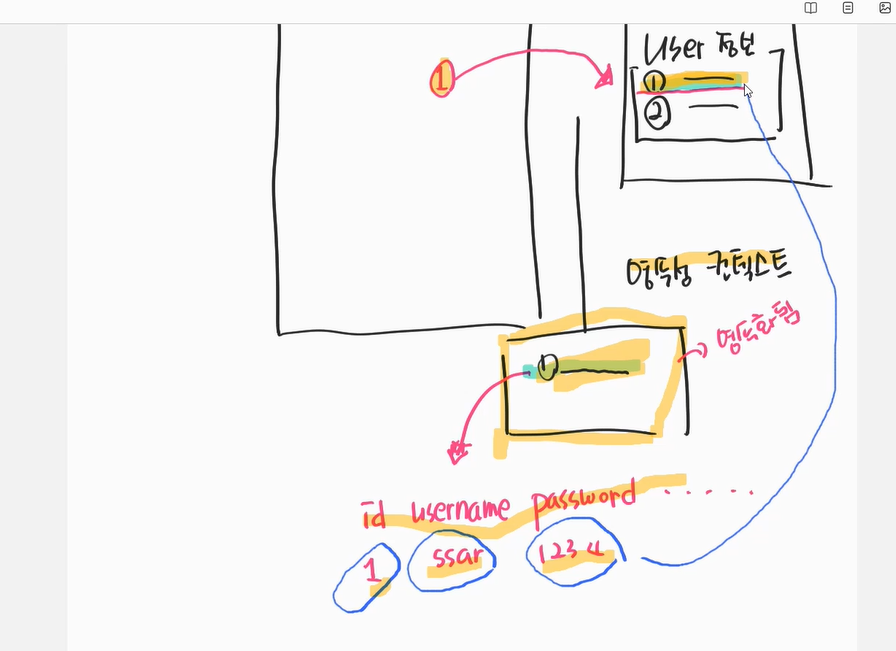 User 정보
1
①
②
영속성 컨텍스트
영속화됨
①
id username password ......
1 ssar 1234